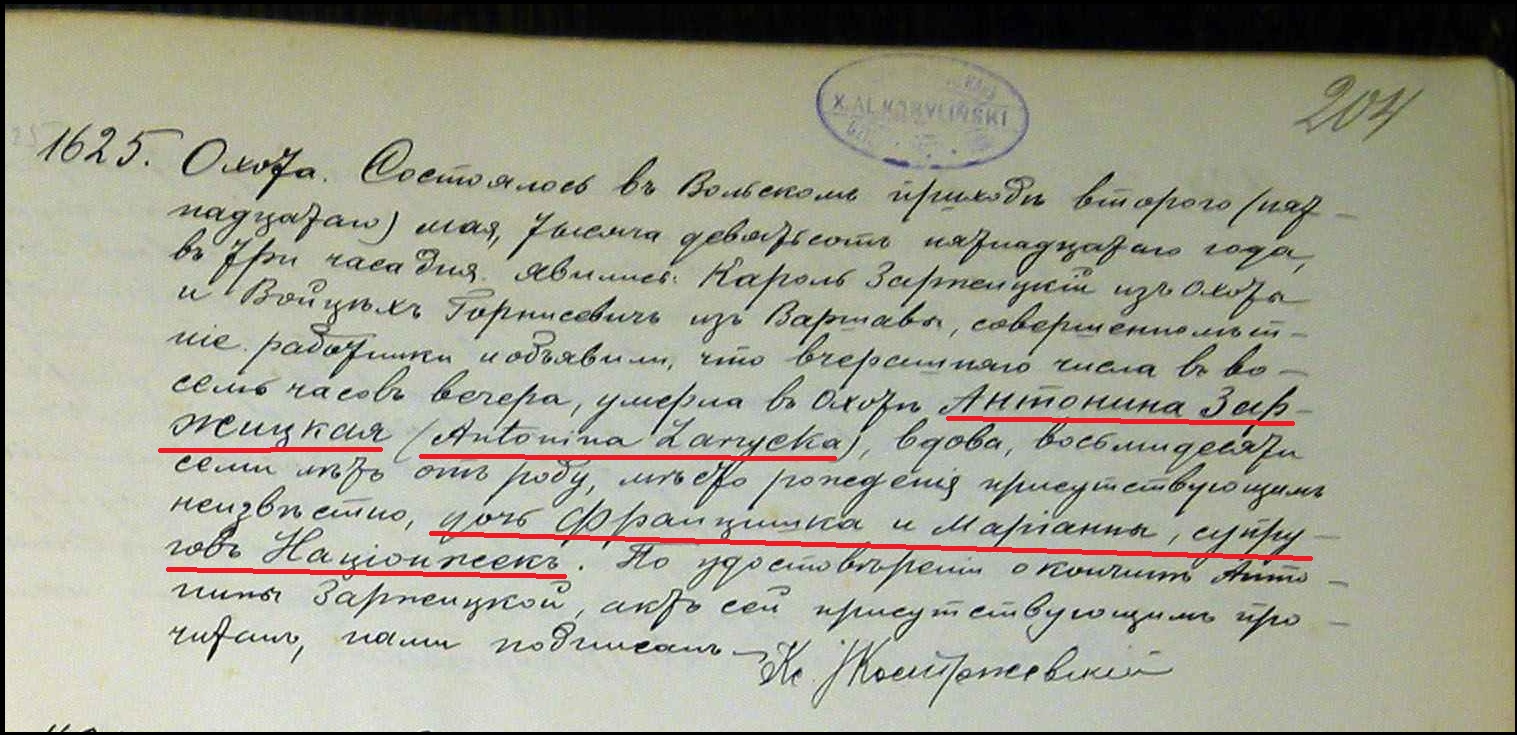 204
X. AL. KOBYLIŃSKI
1625. Охота. Состоялось въ Вольскомъ приходѣ второго (пят-
надцатаго) мая, тысяча девятьсотъ пятнадцатаго года,
въ три часа дня. Явились: Кароль Заржицкій изъ Охоты
и Войцѣхъ Горнисевичъ изъ Варшавы, совершеннолѣт-
ніе работники и объявили, что вчерашняго числа въ во-
семь часовъ вечера, умерла въ Охотѣ Антонина Зар-
жицкая (Antonina Zarzycka), вдова, восьмидесяти
семи лѣтъ отъ роду, мѣсто рожденія присутствующимъ
неизвѣстно, дочь Францишка и Маріанны, супру-
говъ Націонжекъ. По удостовѣреніи о кончинѣ Анто-
нины Заржицкой, актъ сей присутствующимъ про-
читанъ, нами подписанъ.
Кс.